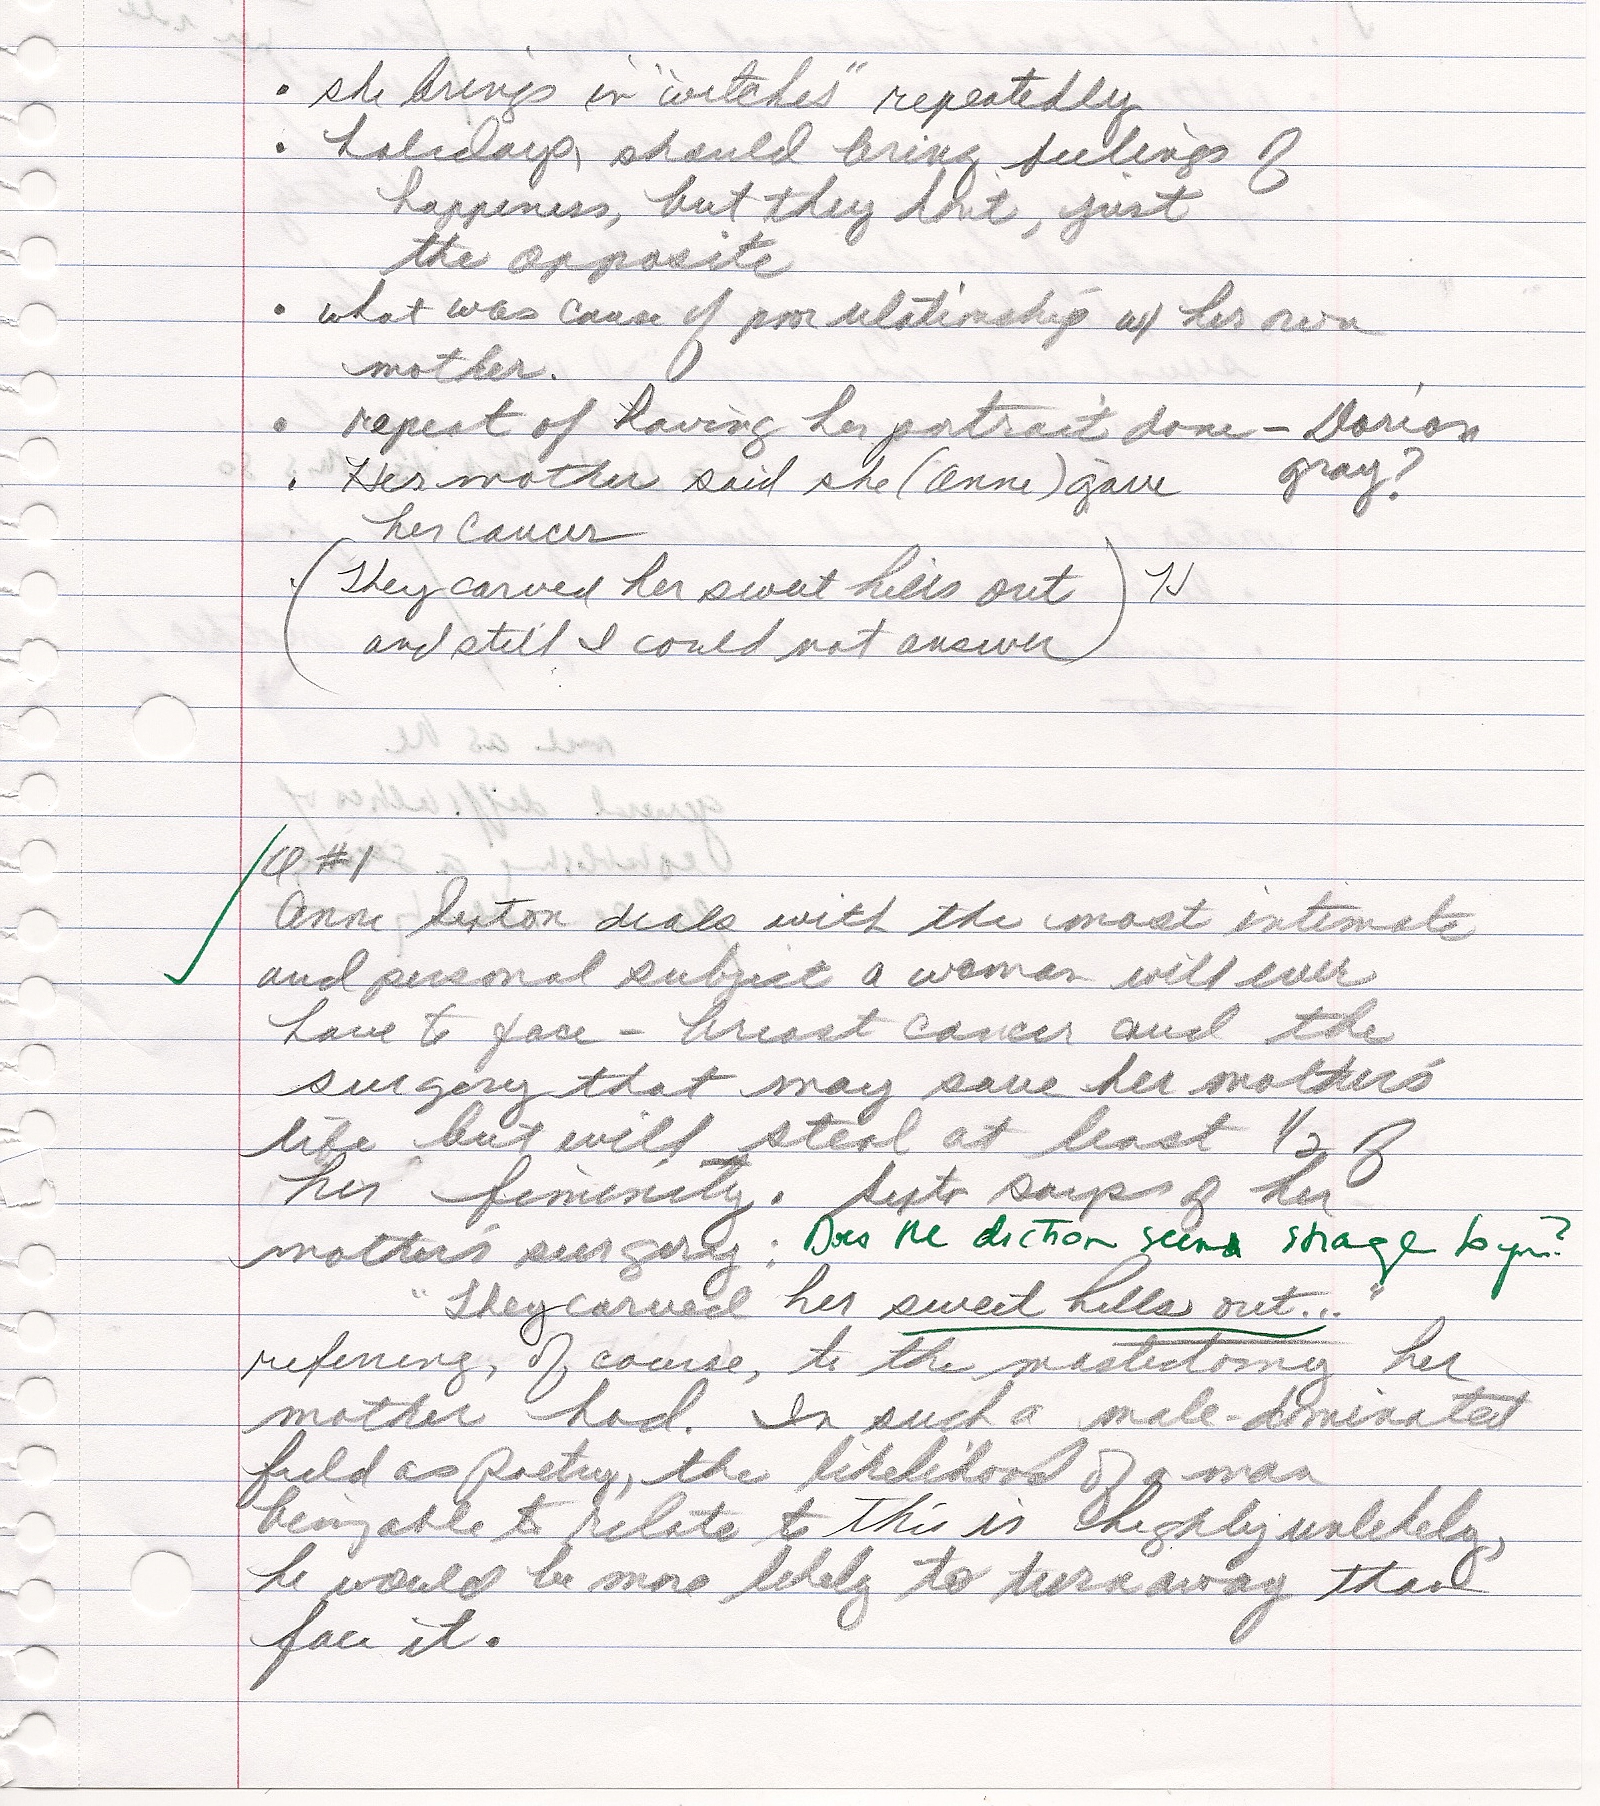 • she brings in "witches" repeatedly
• holidays, should bring feelings of
happiness, but they don't, just
the opposite
• what was cause of poor relationship w/ her own
mother.
• repeat of having her portrait done – Dorian
gray?
• Her mother said she (Anne) gave
her cancer
(They carved her sweet hills out
and still I could not answer)
Q #1
Anne Sexton deals with the most intimate
and personal subject a woman will ever
have to face – breast cancer and the
surgery that may save her mother's
life but will steal at least 1/2 of
her feminity. Sexton says of her
mother's surgery:
Does the diction seem strage to you?
"They carved her sweet hills out..."
referring, of course, to the mastectomy her
mother had. In such a male-dominated
field as poetry, the likelihood of a man
being able to relate to this is highly unlikely,
he would be more likely to turn away than
face it.